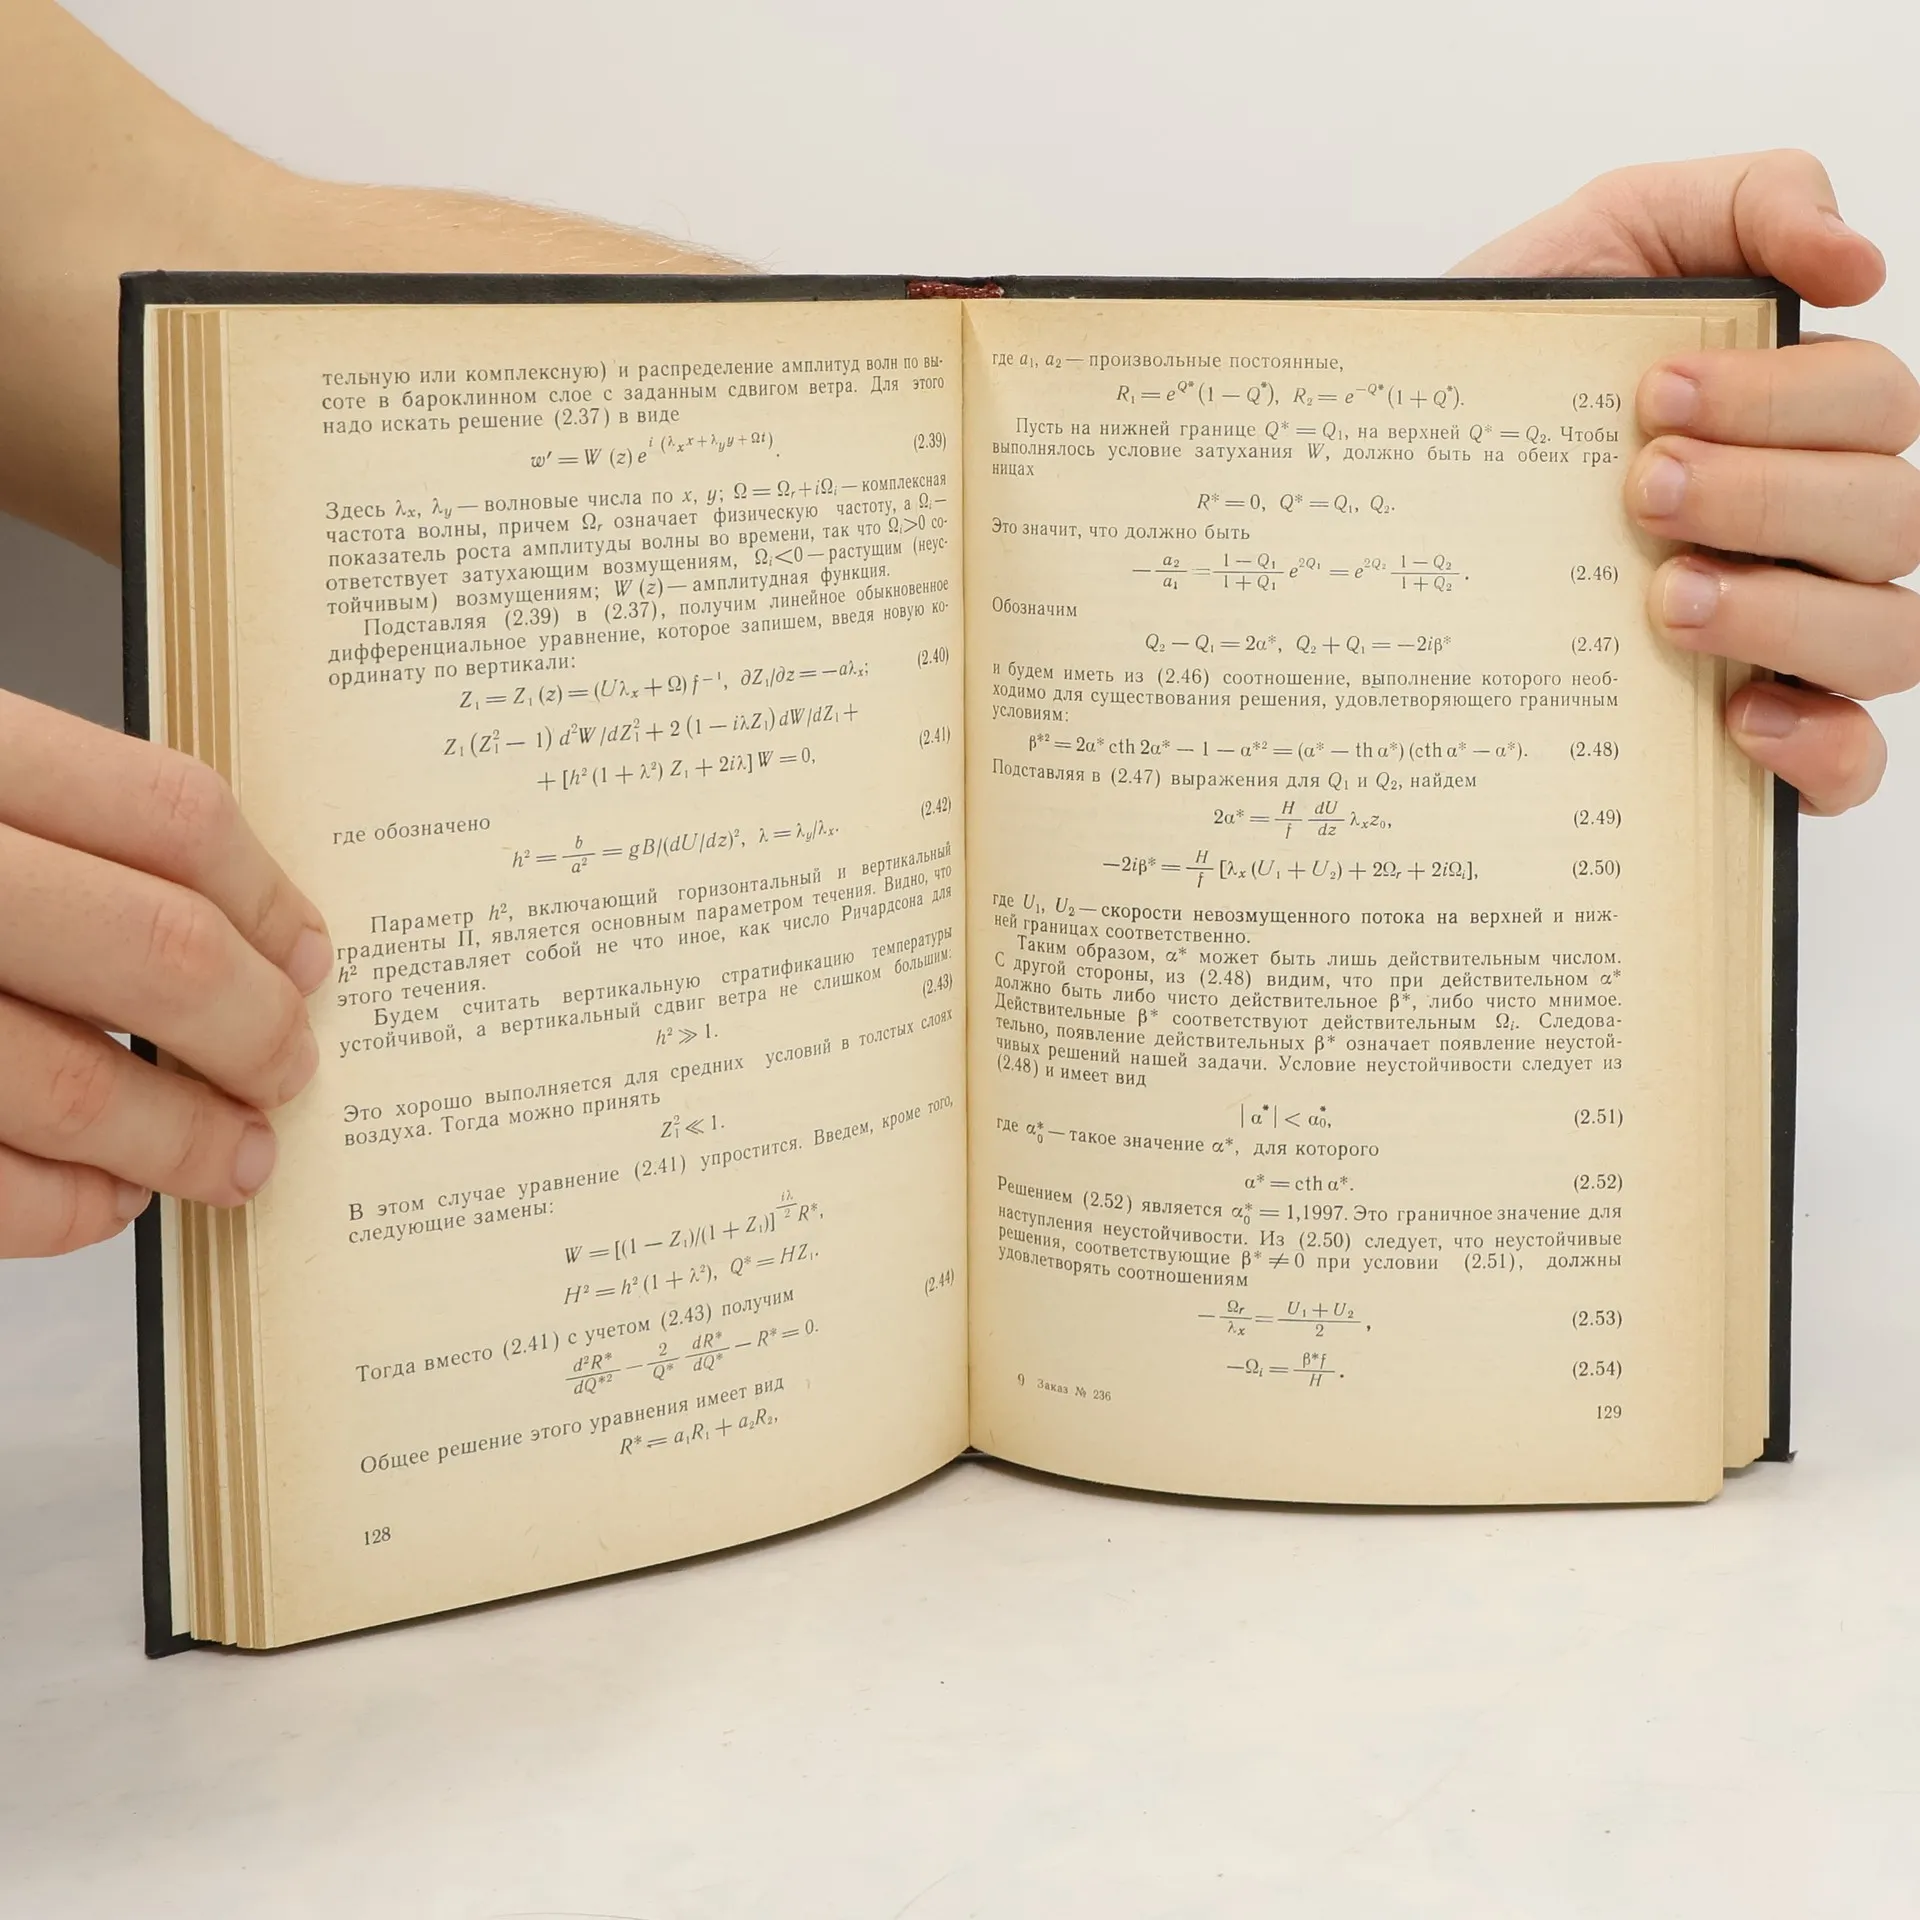 тельную или комплексную) и распределение амплитуд волн по вы-
соте в бароклинном слое с заданным сдвигом ветра. Для этого
надо искать решение (2.37) в виде
w′ = W (z) e^{i (λ_x x + λ_y y + Ωt)}. (2.39)
Здесь λ_x, λ_y — волновые числа по x, y; Ω = Ω_r + iΩ_i — комплексная
частота волны, причем Ω_r означает физическую частоту, а Ω_i —
показатель роста амплитуды волны во времени, так что Ω_i>0 со-
ответствует затухающим возмущениям, Ω_i<0 — растущим (неус-
тойчивым) возмущениям; W (z) — амплитудная функция.
Подставляя (2.39) в (2.37), получим линейное обыкновенное
дифференциальное уравнение, которое запишем, введя новую ко-
ординату по вертикали:
Z₁ = Z₁ (z) = (Uλ_x + Ω) f⁻¹, ∂Z₁/∂z = −aλ_x; (2.40)
Z₁ (Z₁² − 1) d²W/dZ₁² + 2 (1 − iλZ₁) dW/dZ₁ +
+ [h² (1 + λ²) Z₁ + 2iλ] W = 0, (2.41)
где обозначено
h² = b/a² = gB/(dU/dz)², λ = λ_y/λ_x. (2.42)
Параметр h², включающий горизонтальный и вертикальный
градиенты П, является основным параметром течения. Видно, что
h² представляет собой не что иное, как число Ричардсона для
этого течения.
Будем считать вертикальную стратификацию температуры
устойчивой, а вертикальный сдвиг ветра не слишком большим:
h² ≫ 1. (2.43)
Это хорошо выполняется для средних условий в толстых слоях
воздуха. Тогда можно принять
Z₁² ≪ 1.
В этом случае уравнение (2.41) упростится. Введем, кроме того,
следующие замены:
W = [(1 − Z₁)/(1 + Z₁)]^{iλ/2} R*,
H² = h² (1 + λ²), Q* = HZ₁.
Тогда вместо (2.41) с учетом (2.43) получим (2.44)
d²R*/dQ*² − 2/Q* dR*/dQ* − R* = 0.
Общее решение этого уравнения имеет вид
R* = a₁R₁ + a₂R₂,
128
где a₁, a₂ — произвольные постоянные,
R₁ = e^{Q*} (1 − Q*), R₂ = e^{−Q*} (1 + Q*). (2.45)
Пусть на нижней границе Q* = Q₁, на верхней Q* = Q₂. Чтобы
выполнялось условие затухания W, должно быть на обеих гра-
ницах
R* = 0, Q* = Q₁, Q₂.
Это значит, что должно быть
− a₂/a₁ = (1 − Q₁)/(1 + Q₁) e^{2Q₁} = e^{2Q₂} (1 − Q₂)/(1 + Q₂). (2.46)
Обозначим
Q₂ − Q₁ = 2α*, Q₂ + Q₁ = −2iβ* (2.47)
и будем иметь из (2.46) соотношение, выполнение которого необ-
ходимо для существования решения, удовлетворяющего граничным
условиям:
β*² = 2α* cth 2α* − 1 − α*² = (α* − th α*) (cth α* − α*). (2.48)
Подставляя в (2.47) выражения для Q₁ и Q₂, найдем
2α* = H/f dU/dz λ_x z₀, (2.49)
−2iβ* = H/f [λ_x (U₁ + U₂) + 2Ω_r + 2iΩ_i], (2.50)
где U₁, U₂ — скорости невозмущенного потока на верхней и ниж-
ней границах соответственно.
Таким образом, α* может быть лишь действительным числом.
С другой стороны, из (2.48) видим, что при действительном α*
должно быть либо чисто действительное β*, либо чисто мнимое.
Действительные β* соответствуют действительным Ω_i. Следова-
тельно, появление действительных β* означает появление неустой-
чивых решений нашей задачи. Условие неустойчивости следует из
(2.48) и имеет вид
|α*| < α₀*, (2.51)
где α₀* — такое значение α*, для которого
α* = cth α*. (2.52)
Решением (2.52) является α₀* = 1,1997. Это граничное значение для
наступления неустойчивости. Из (2.50) следует, что неустойчивые
решения, соответствующие β* ≠ 0 при условии (2.51), должны
удовлетворять соотношениям
− Ω_r/λ_x = (U₁ + U₂)/2, (2.53)
−Ω_i = β*f/H. (2.54)
9 Заказ № 236
129